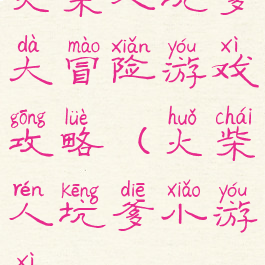 dà mào xiǎn yóu xì
大冒险游戏
gōng lüè huǒ chái
攻略（火柴
rén kēng diē xiǎo yóu
人坑爹小游
xì